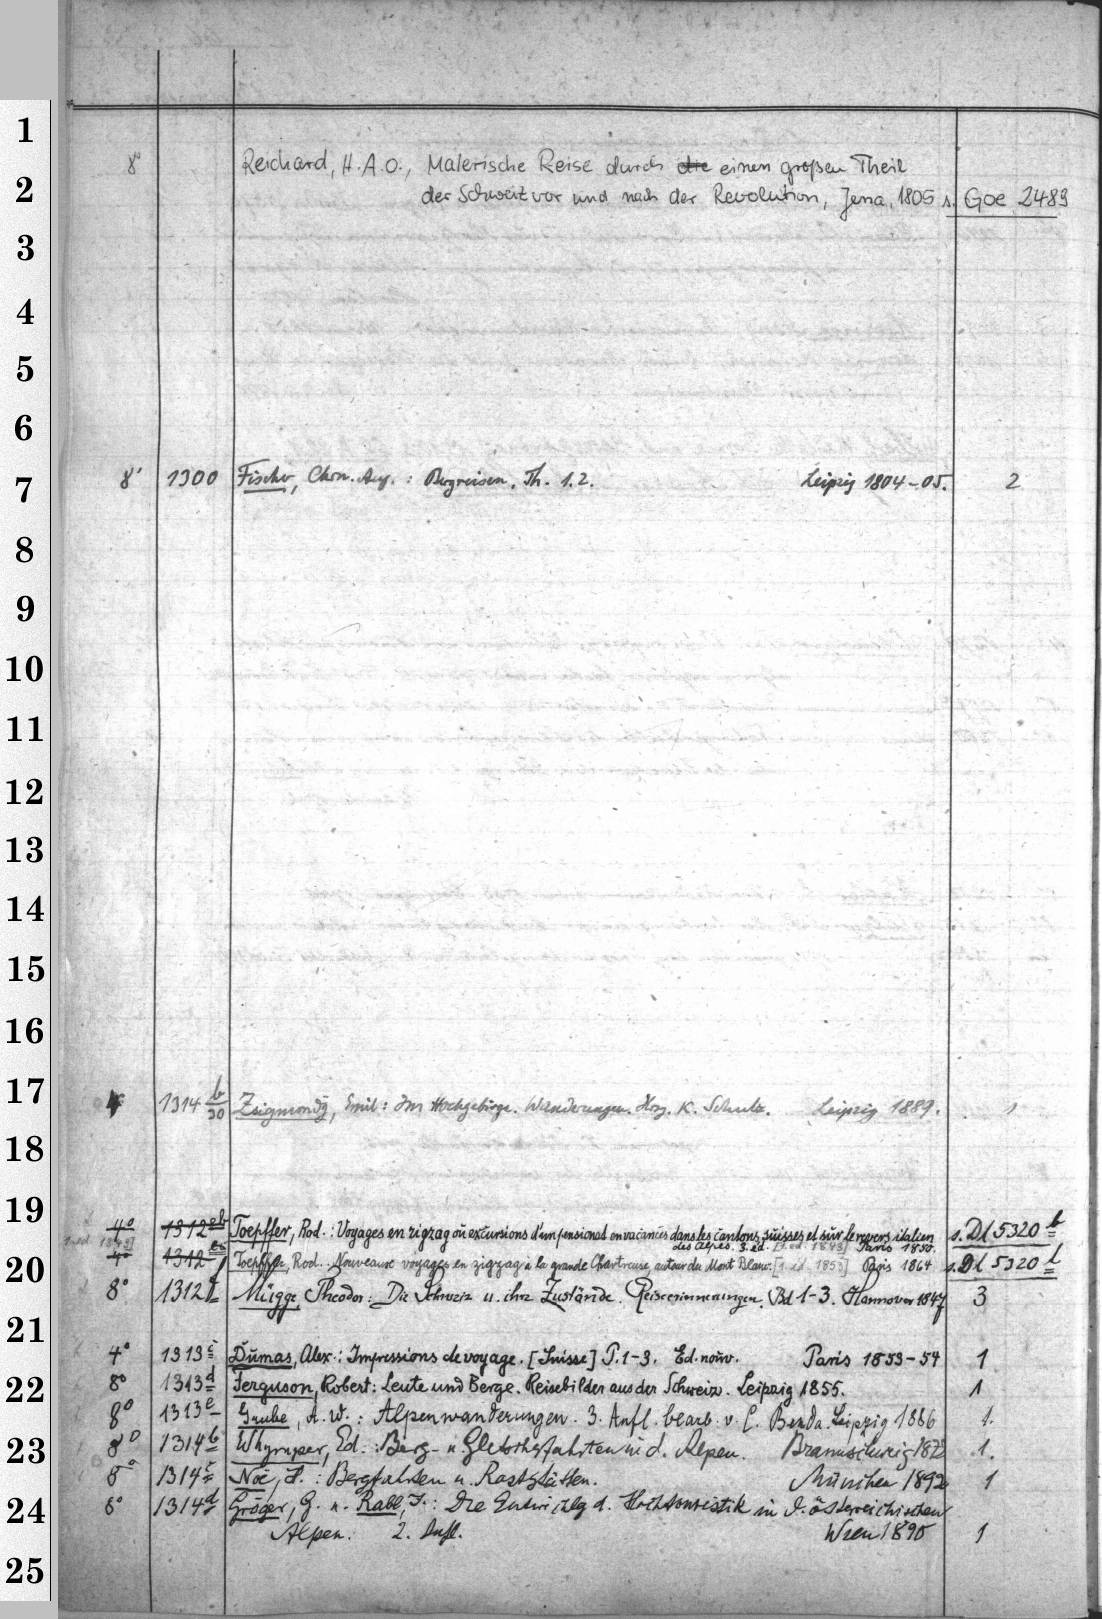 1
8° Reichard, H.A.O., Malerische Reise durch die einen großen Theil
2
der Schweiz vor und nach der Revolution, Jena, 1805 s. Goe 2489
3
4
5
6
7
8° 1300 Fischer, Chrn. Aug. : Bergreisen. Th. 1.2. Leipzig 1804-05. 2
8
9
10
11
12
13
14
15
16
17
4° 1314 b/30 Zsigmondÿ, Emil: Im Hochgebirge. Wanderungen. Hrg. K. Schulz. Leipzig 1889. 1
18
19
4° 1312 Toepffer, Rod.: Voyages en zigzag ou excursions d'un pensionat en vacances dans les cantons suisses et sur le revers italien s. Dl 5320 b
des Alpes. 3. éd. [1. éd. 1843] Paris 1850.
20
4° 1312 Toepffer, Rod.: Nouveaux voyages en zigzag à la grande Chartreuse, autour du Mont Blanc. [1. éd. 1853] Paris 1864 s. Dl 5320 l
8° 1312 Mügge, Theodor: Die Schweiz u. ihre Zustände. Reiseerinnerungen. Bd 1-3. Hannover 1847 3
21
4° 1313 c Dumas, Alex.: Impressions de voyage. [Suisse] P. 1-3. Ed. nouv. Paris 1853-54 1
22
8° 1313 d Ferguson, Robert: Leute und Berge. Reisebilder aus der Schweiz. Leipzig 1855. 1
8° 1313 e Grube, A. W.: Alpenwanderungen. 3. Aufl. bearb. v. C. Benda. Leipzig 1886 1.
23
8° 1314 b Whymper, Ed.: Berg- u. Gletscherfahrten in d. Alpen. Braunschweig 1872 1.
8° 1314 c Noë, H.: Bergfahrten u. Raststätten. München 1892 1
24
8° 1314 d Gröger, G. u. Rabl, J.: Die Entwicklg d. Hochtouristik in d. österreichischen
Alpen. 2. Aufl. Wien 1890 1
25